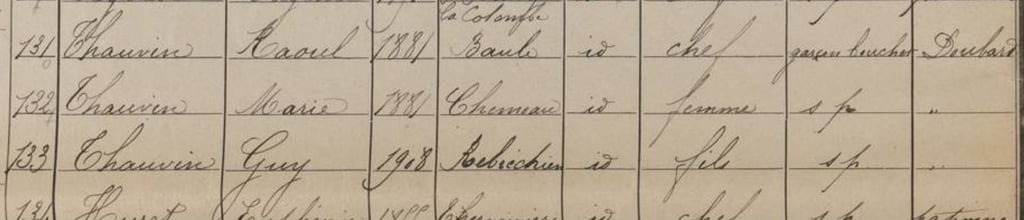 la Colombe
131 Chauvin Raoul 1881 Baule id chef garçon boucher Doubard
132 Chauvin Marie 1881 Chenneau id femme s p "
133 Chauvin Guy 1908 Rebréchien id fils s p "
134 Huret id chef s p